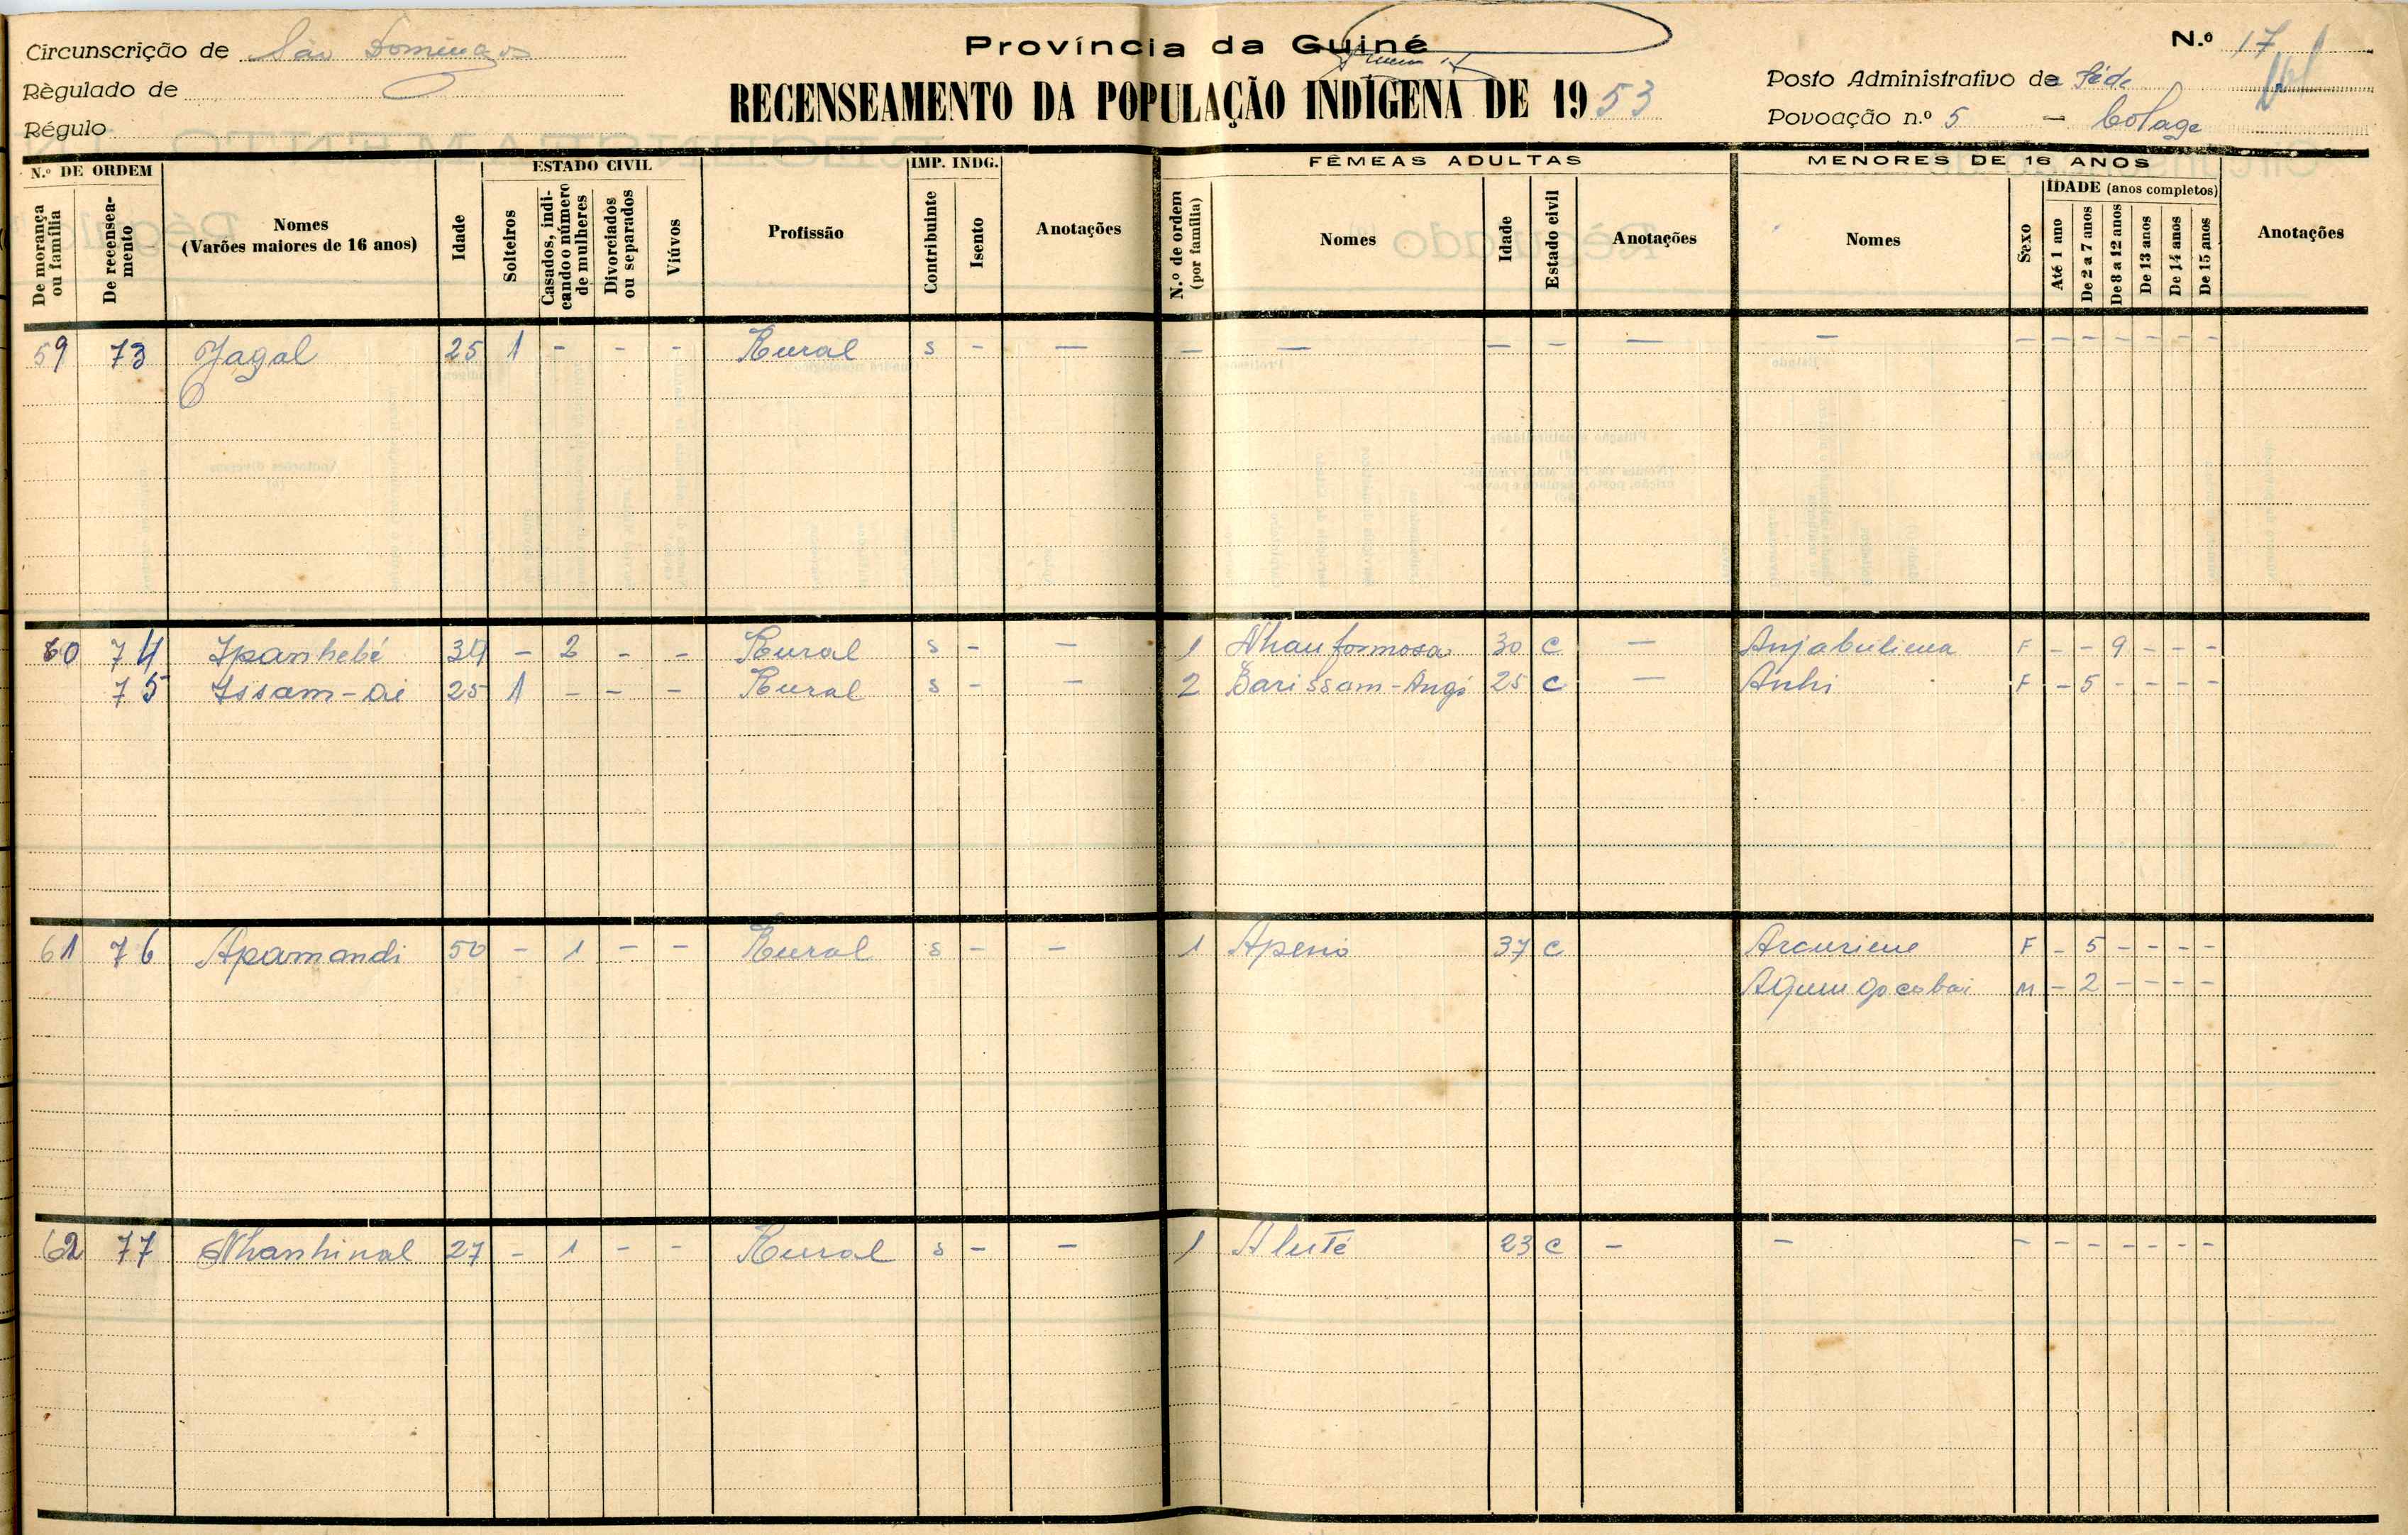 Circunscrição de São Domingos
Règulado de
Régulo
Província da Guiné
RECENSEAMENTO DA POPULAÇÃO INDÍGENA DE 1953
N.º 17
Posto Administrativo de Séde
Povoação n.º 5 - Colage
N.º DE ORDEM
De morança ou família
De recensea-mento
Nomes
(Varões maiores de 16 anos)
Idade
ESTADO CIVIL
Solteiros
Casados, indi-cando o número de mulheres
Divorciados ou separados
Viúvos
Profissão
IMP. INDG.
Contribuinte
Isento
Anotações
FÊMEAS ADULTAS
N.º de ordem (por família)
Nomes
Idade
Estado civil
Anotações
MENORES DE 16 ANOS
Nomes
Sexo
IDADE (anos completos)
Até 1 ano
De 2 a 7 anos
De 8 a 12 anos
De 13 anos
De 14 anos
De 15 anos
Anotações
59 73 Jagal 25 1 - - - Rural s - — — — — - — — — - - - - - -
60 74 Ipanhebé 34 - 2 - - Rural s - — 1 Nhauformosa 30 C — Anjabuliena F - - 9 - - -
75 Issam-ai 25 1 - - - Rural s - — 2 Barissam-Angi 25 C — Anhi F - 5 - - - -
61 76 Apamondi 50 - 1 - - Rural s - - 1 Apeno 37 C Arcuriene F - 5 - - - -
M - 2 - - - -
62 77 Nhanhinal 27 - 1 - - Rural s - - 1 Aluté 23 C - - - - - - - - -